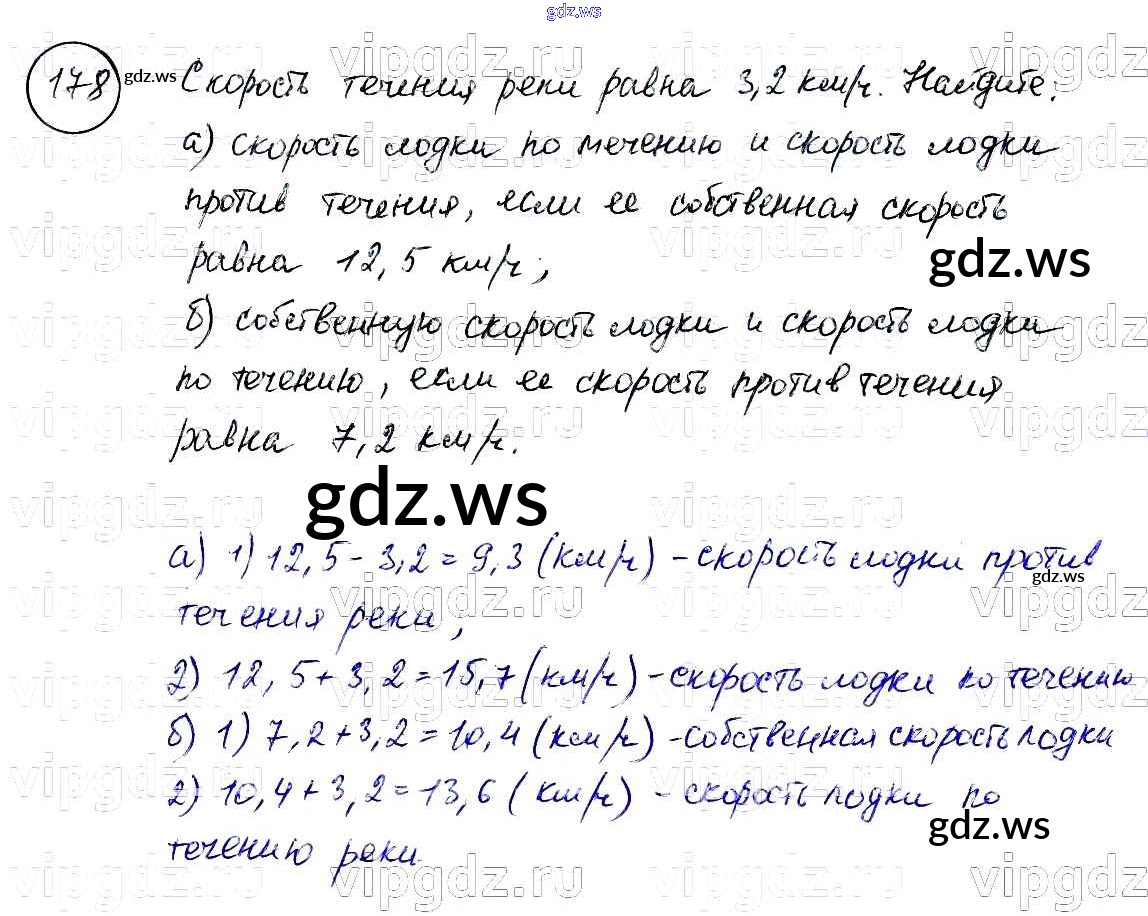 gdz.ws
178 gdz.ws Скорость течения реки равна 3,2 км/ч. Найдите:
а) скорость лодки по течению и скорость лодки
против течения, если ее собственная скорость
равна 12,5 км/ч;
gdz.ws
б) собственную скорость лодки и скорость лодки
по течению, если ее скорость против течения
равна 7,2 км/ч.
gdz.ws
а) 1) 12,5 - 3,2 = 9,3 (км/ч) - скорость лодки против
gdz.ws
течения реки,
2) 12,5 + 3,2 = 15,7 (км/ч) - скорость лодки по течению
б) 1) 7,2 + 3,2 = 10,4 (км/ч) - собственная скорость лодки
2) 10,4 + 3,2 = 13,6 (км/ч) - скорость лодки по
gdz.ws
течению реки
vipgdz.ru